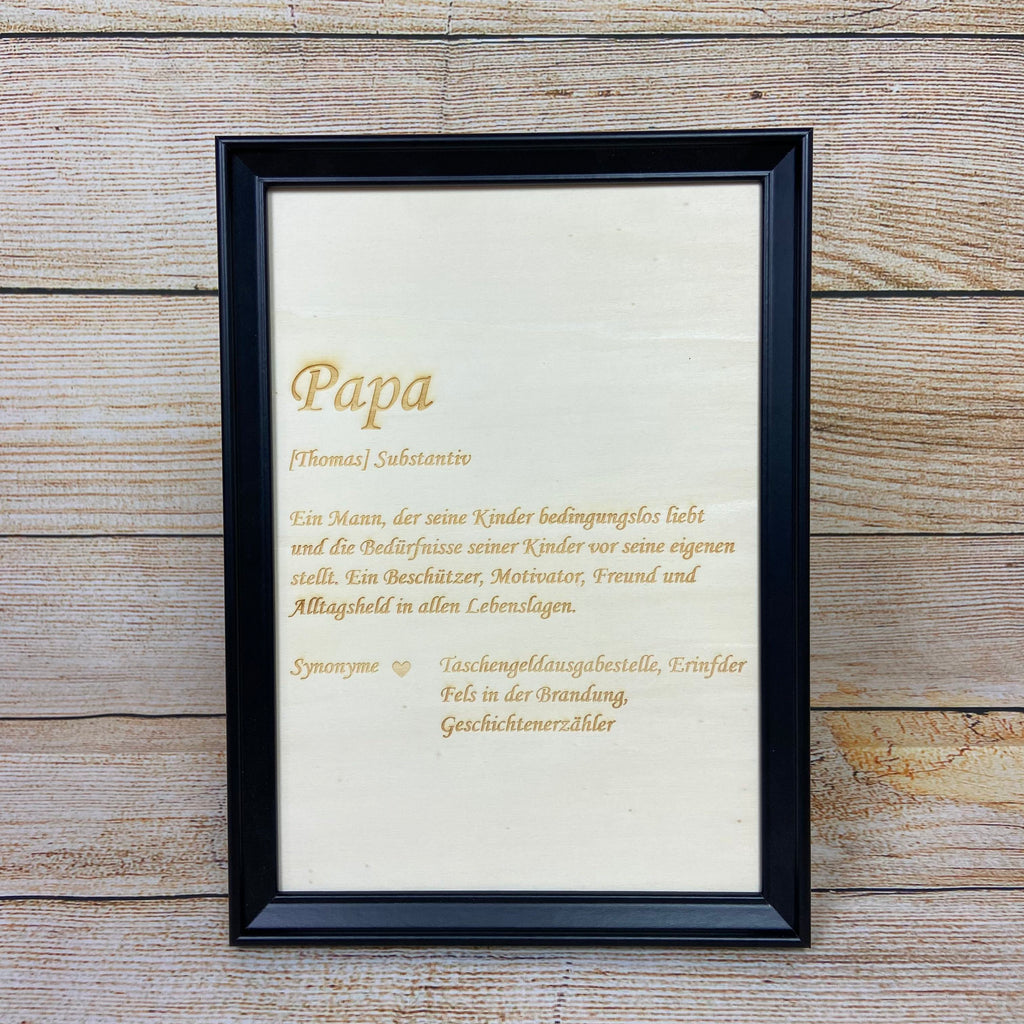 Papa
[Thomas] Substantiv
Ein Mann, der seine Kinder bedingungslos liebt
und die Bedürfnisse seiner Kinder vor seine eigenen
stellt. Ein Beschützer, Motivator, Freund und
Alltagsheld in allen Lebenslagen.
Synonyme ♥ Taschengeldausgabestelle, Erinfder
Fels in der Brandung,
Geschichtenerzähler